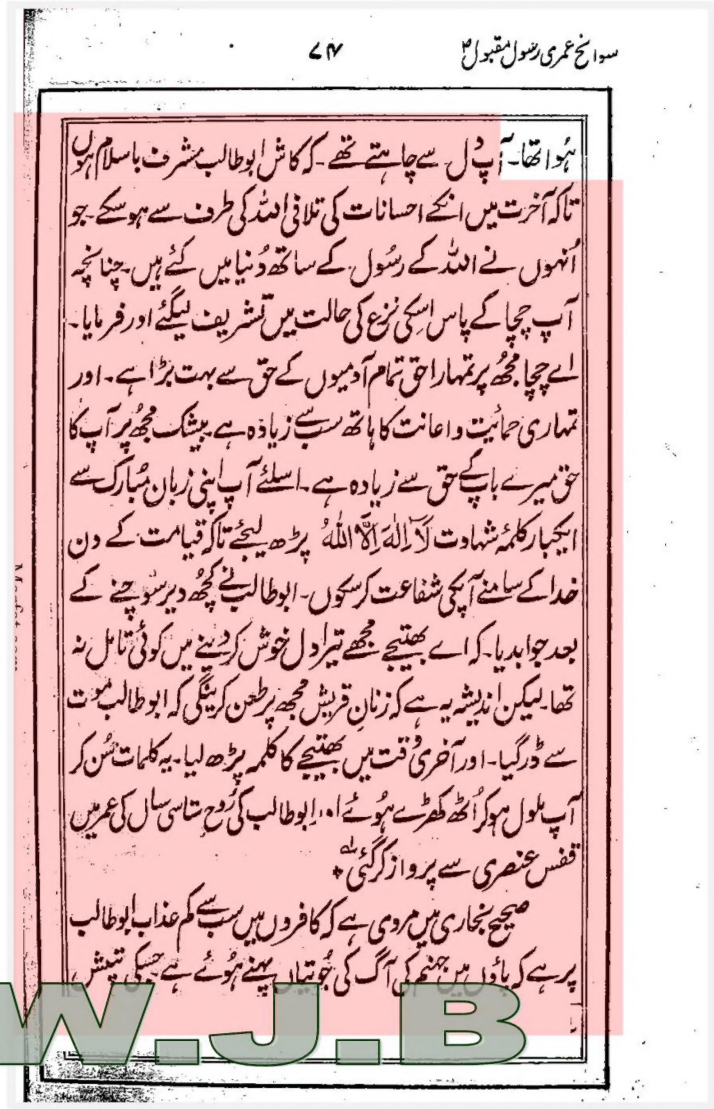 سوانح عمری رسول مقبول ۴
۷۴
ہُوا تھا۔ آپ دل سے چاہتے تھے۔ کہ کاش ابوطالب مشرف باسلام ہوں
تاکہ آخرت میں انکے احسانات کی تلافی اللہ کی طرف سے ہوسکے۔ جو
اُنہوں نے اللہ کے رسُول کے ساتھ دُنیا میں کئے ہیں۔ چنانچہ
آپ چچا کے پاس اسکی نزع کی حالت میں تشریف لیگئے اور فرمایا۔
اے چچا مجھ پر تمہارا حق تمام آدمیوں کے حق سے بہت بڑا ہے۔ اور
تمہاری حمائیت و اعانت کا ہاتھ سب سے زیادہ ہے۔ بیشک مجھ پر آپ کا
حق میرے باپ کے حق سے زیادہ ہے۔ اسلئے آپ اپنی زبان مُبارک سے
ایکبار کلمۂ شہادت لَآ اِلٰہَ اِلَّا اللہُ پڑھ لیجئے تاکہ قیامت کے دن
خدا کے سامنے آپکی شفاعت کرسکوں۔ ابوطالب نے کچھ دیر سوچنے کے
بعد جوابدیا۔ کہ اے بھتیجے مجھے تیرا دل خوش کردینے میں کوئی تامل نہ
تھا۔ لیکن اندیشہ یہ ہے کہ زنانِ قریش مجھ پر طعن کرینگی کہ ابوطالب موت
سے ڈر گیا۔ اور آخری وقت میں بھتیجے کا کلمہ پڑھ لیا۔ یہ کلمات سُن کر
آپ ملول ہوکر اُٹھ کھڑے ہُوئے اور ابوطالب کی رُوح ستاسی سال کی عمر میں
قفس عنصری سے پرواز کرگئی؎
صحیح بخاری میں مروی ہے کہ کافروں میں سب سے کم عذاب ابوطالب
پر ہے کہ پاؤں میں جہنم کی آگ کی جُوتیاں پہنے ہُوئے ہے جسکی تپش
W.J.B